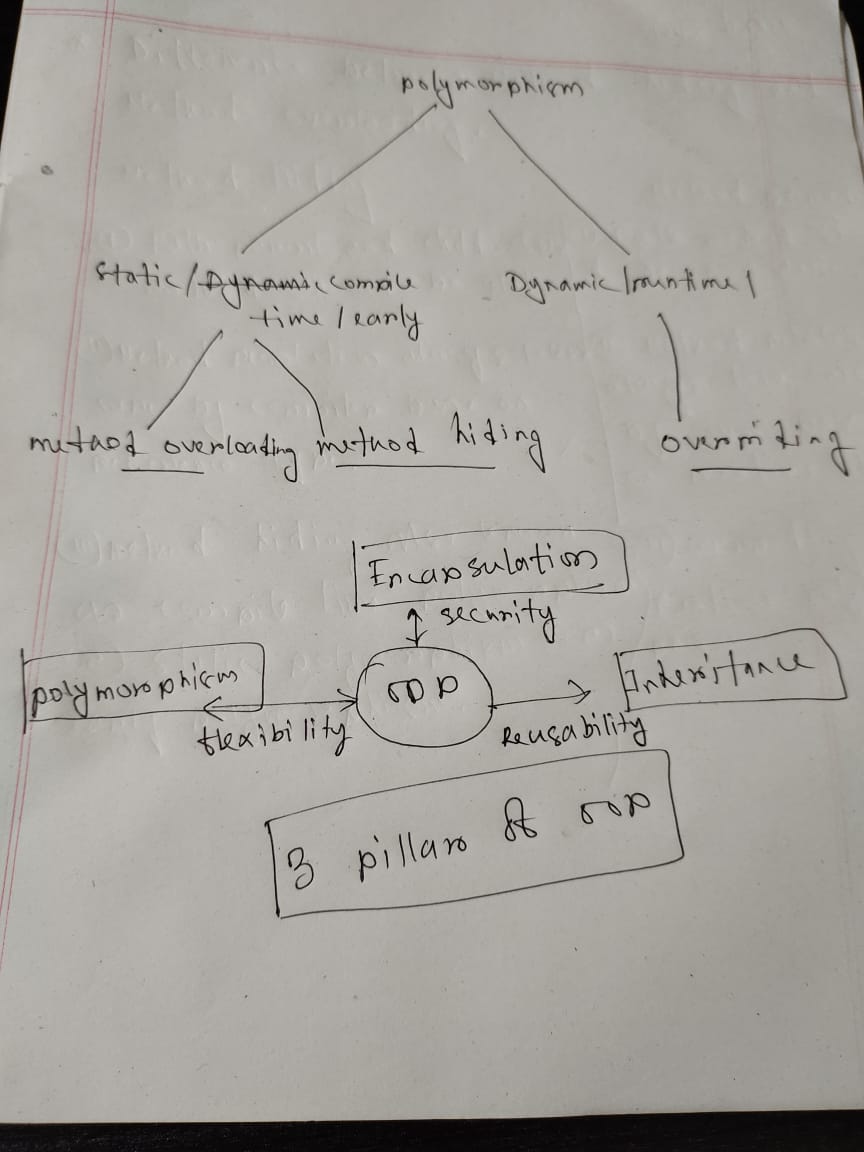 polymorphism
Static/Dynamic compile
time / early
Dynamic/runtime/
method overloading method hiding
overriding
Encapsulation
security
polymorophism
flexibility
OOP
Inheritance
Reusability
3 pillar of OOP